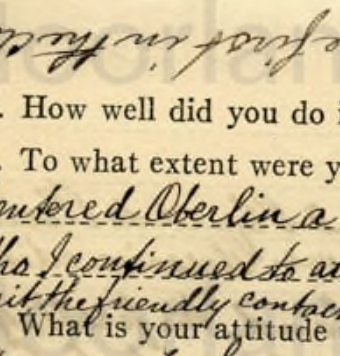 first in the
. How well did you do i
. To what extent were y
entered Oberlin a
ho I continued to at
it the friendly contac
What is your attitude